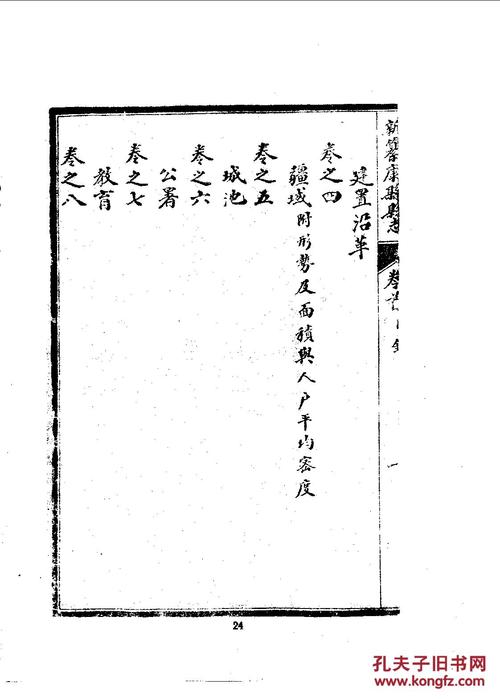 新纂康縣縣志
卷首目錄
建置沿革
卷之四
疆域附形勢及面積與人户平均密度
卷之五
城池
卷之六
公署
卷之七
教育
卷之八
24
孔夫子旧书网
www.kongfz.com